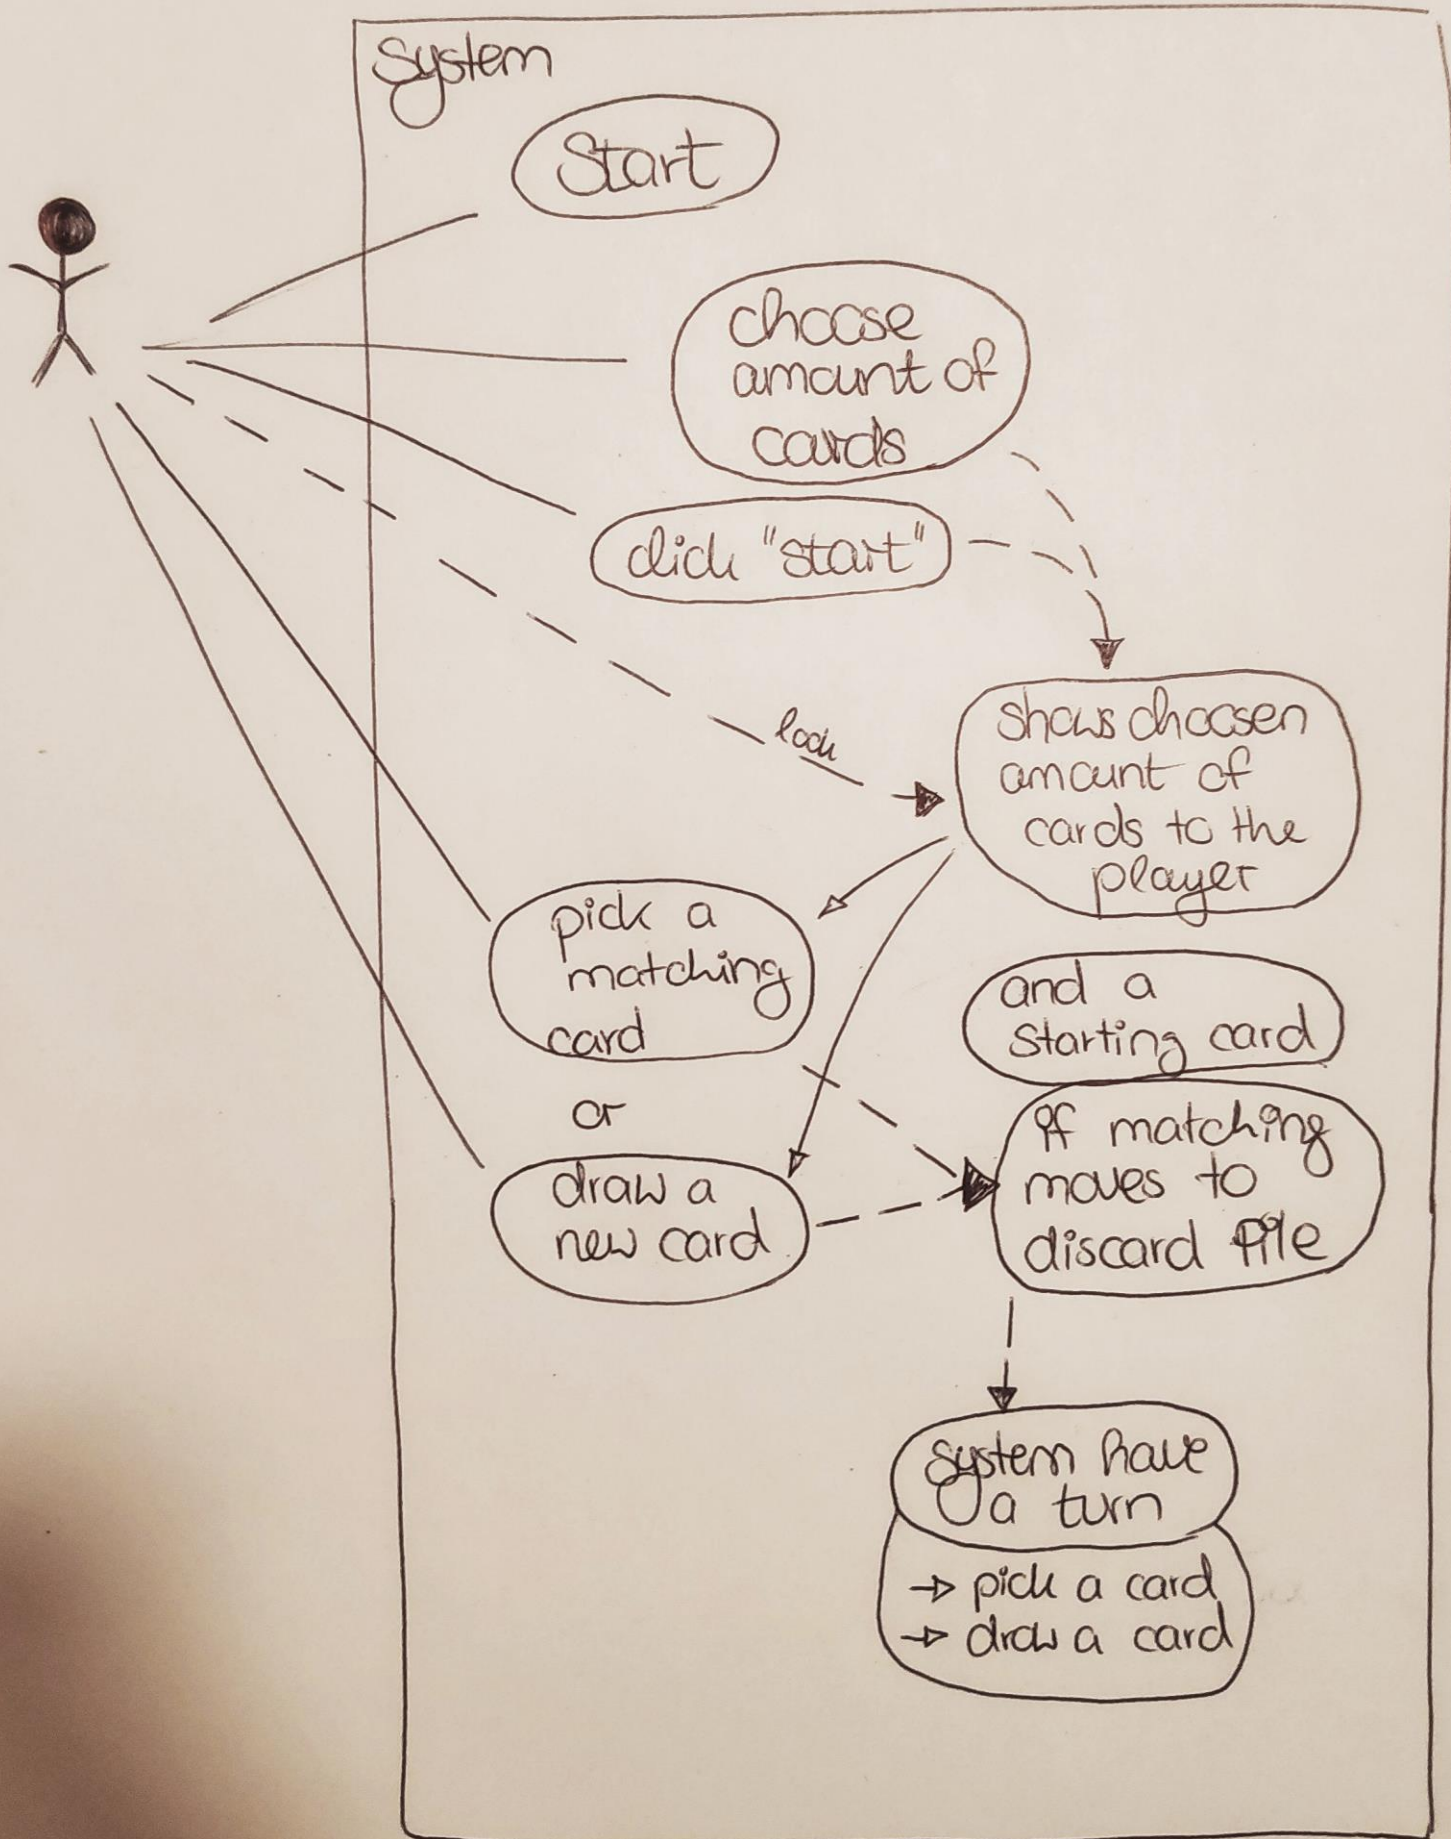 System
Start
choose
amount of
cards
click "start"
look
shows choosen
amount of
cards to the
player
pick a
matching
card
and a
starting card
or
if matching
moves to
discard pile
draw a
new card
system have
a turn
→ pick a card
→ draw a card